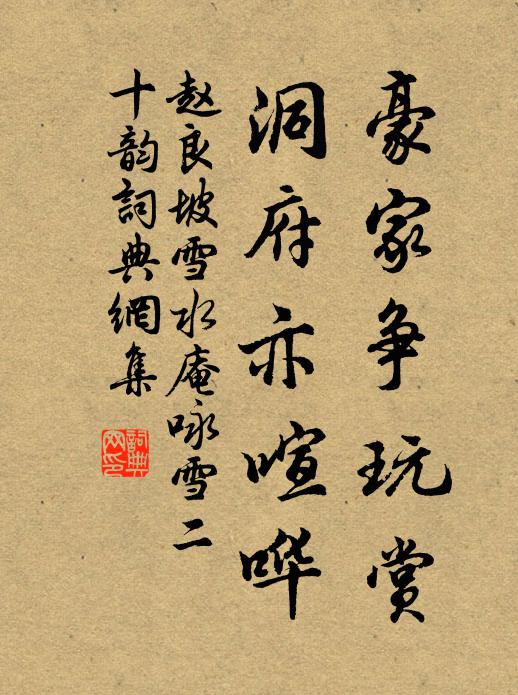 豪家争玩赏
洞府亦喧哗
赵良坡雪水庵咏雪二
十韵詞典網集
詞典
网印